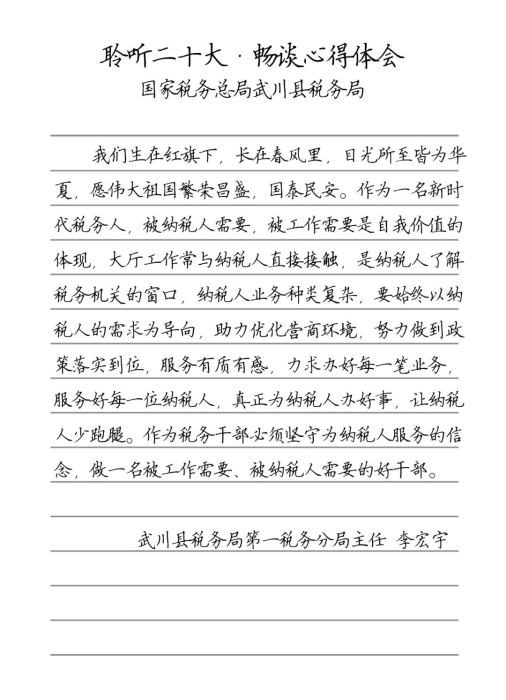 聆听二十大·畅谈心得体会
国家税务总局武川县税务局
我们生在红旗下，长在春风里，目光所至皆为华
夏，愿伟大祖国繁荣昌盛，国泰民安。作为一名新时
代税务人，被纳税人需要，被工作需要是自我价值的
体现，大厅工作常与纳税人直接接触，是纳税人了解
税务机关的窗口，纳税人业务种类复杂，要始终以纳
税人的需求为导向，助力优化营商环境，努力做到政
策落实到位，服务有质有感，力求办好每一笔业务，
服务好每一位纳税人，真正为纳税人办好事，让纳税
人少跑腿。作为税务干部必须坚守为纳税人服务的信
念，做一名被工作需要、被纳税人需要的好干部。
武川县税务局第一税务分局主任 李宏宇